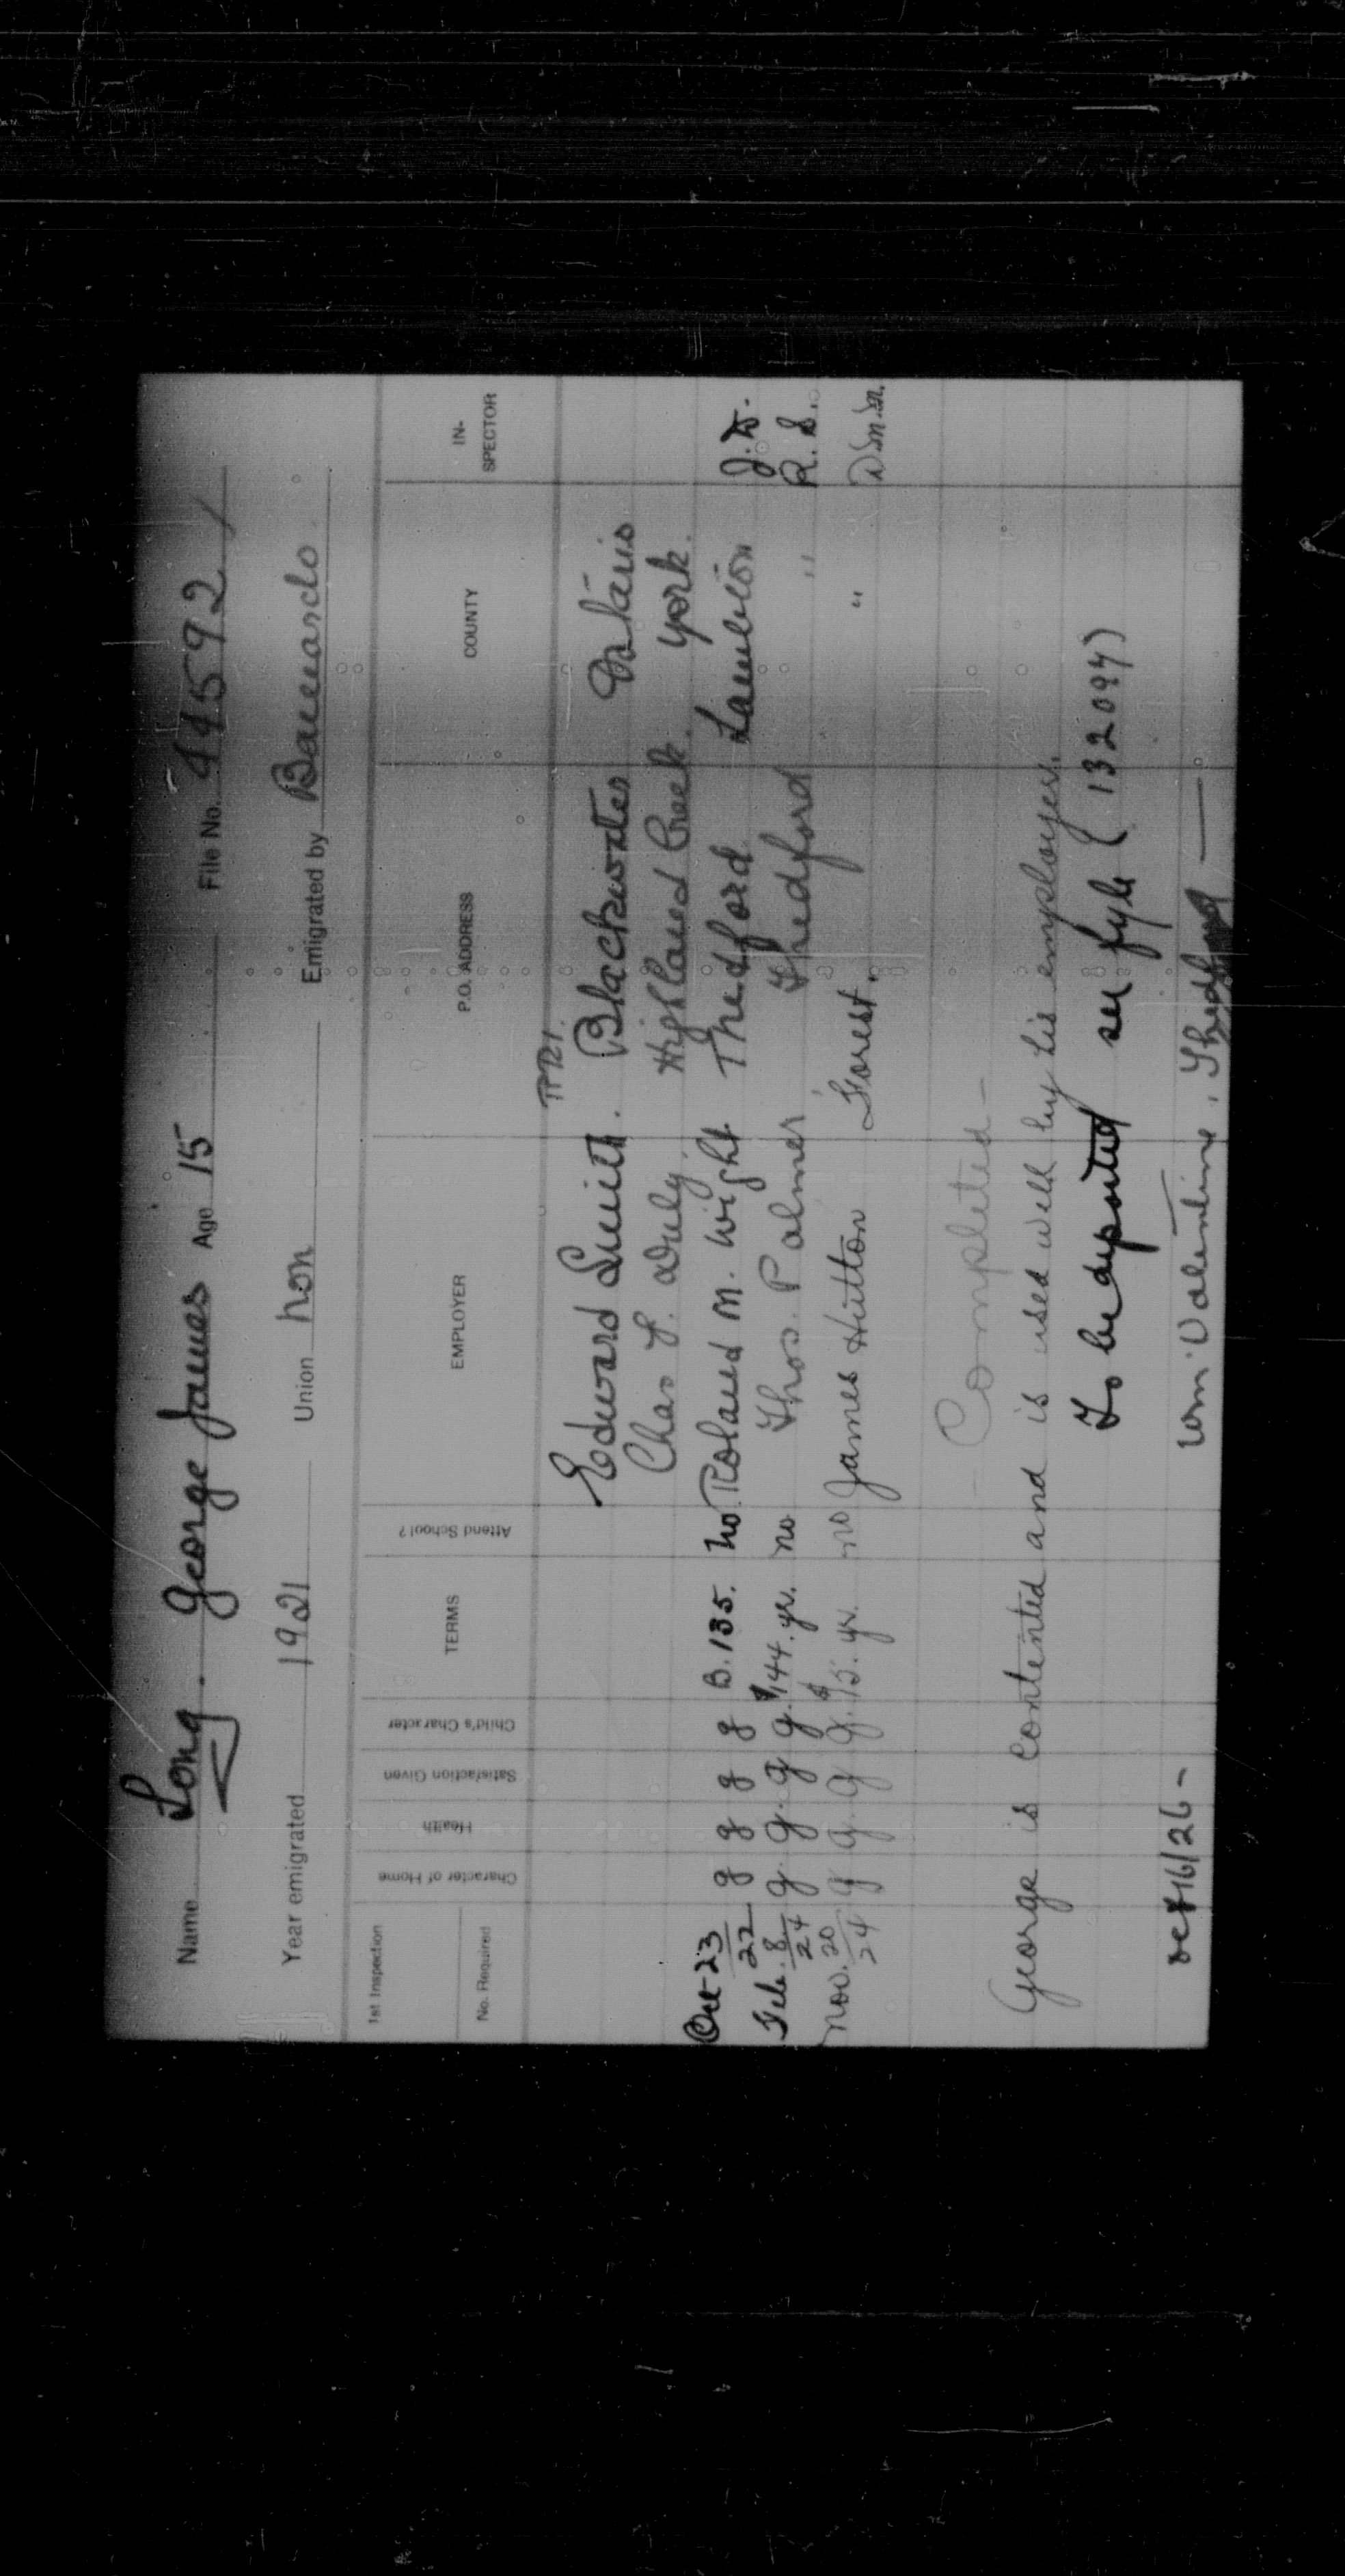 Name Long. George James Age 15 File No. 445592
Year emigrated 1921 Union Lon Emigrated by Barnardo
1st Inspection
No. Required
Character of Home
Health
Satisfaction Given
Child's Character
TERMS
Attend School?
EMPLOYER
P.O. ADDRESS
COUNTY
IN-SPECTOR
RR1.
Edward Smith. Blackwater Ontario
Chas L. Highland Creek. York.
Oct 23/22 g g g g B. 135. no. Roland M. Wight Thedford Lambton J.D.
Feb. 8/24 g. g. g g. $144. yr. no Thos. Palmer Thedford " R.S.
Nov. 20/24 g g. g g. $15. yr. no James Hutton Forest. "
- Completed -
George is contented and is used well by his employers.
To be deported see fyle (132094)
Oct 16/26 - Wm. Valentine, Thedford —